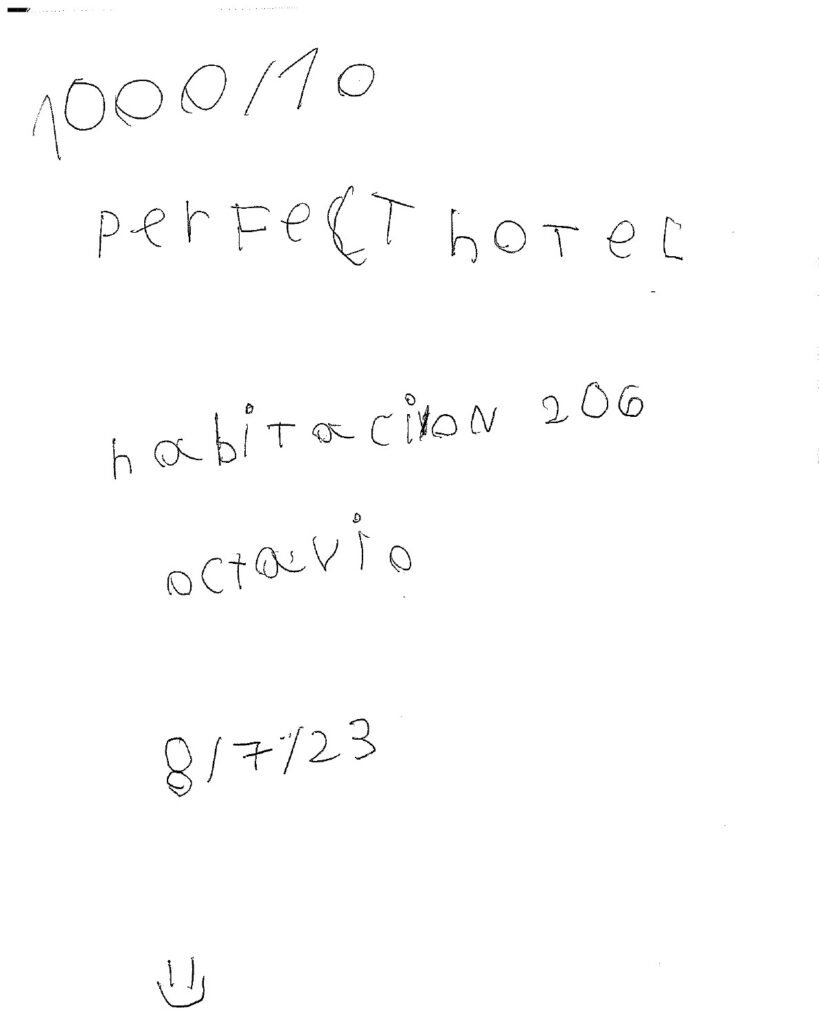 1000/10
PerFeCT hoTel
habiTaciON 206
octavio
8/7/23